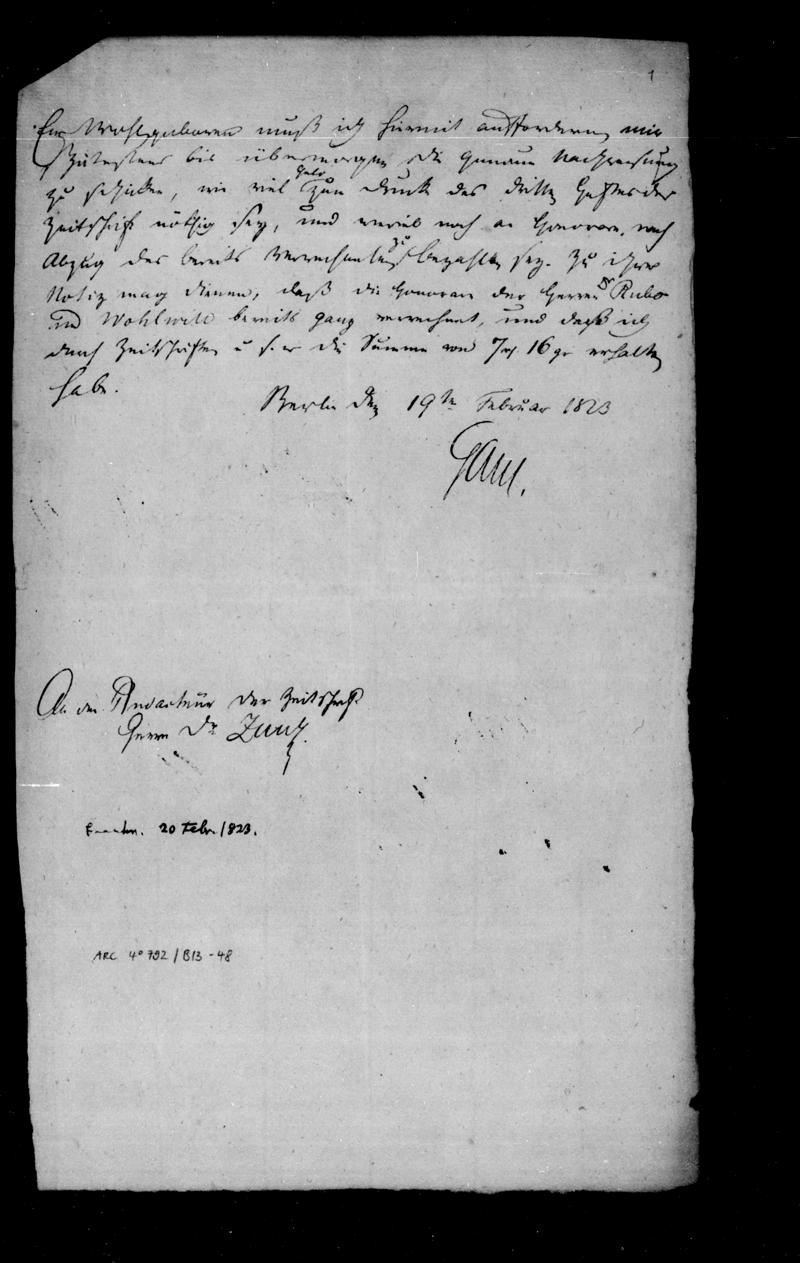 1
Ew Wohlgeboren muß ich hiermit auffordern, mir
spätestens bis übermorgen die genaue Nachweisung
zu schicken, wie viel Geld zum Druck des dritten Heftes der
Zeitschrift nöthig sey, und wieviel noch an Honorar, nach
Abzug des bereits verrechneten zu bezahlen sey. Zu ihrer
Notiz mag dienen, daß die Honorare der Herren Dr Rubo
und Wohlwill bereits ganz verrechnet, und daß ich
durch Zeitschriften u s. w die Summe von 7 rt 16 gr erhalten
habe.
Berlin den 19ten Februar 1823
Gans.
An den Redacteur der Zeitschrift
Herrn Dr Zunz.
20 Febr. 1823.
ARC 4° 792 / B13 - 48